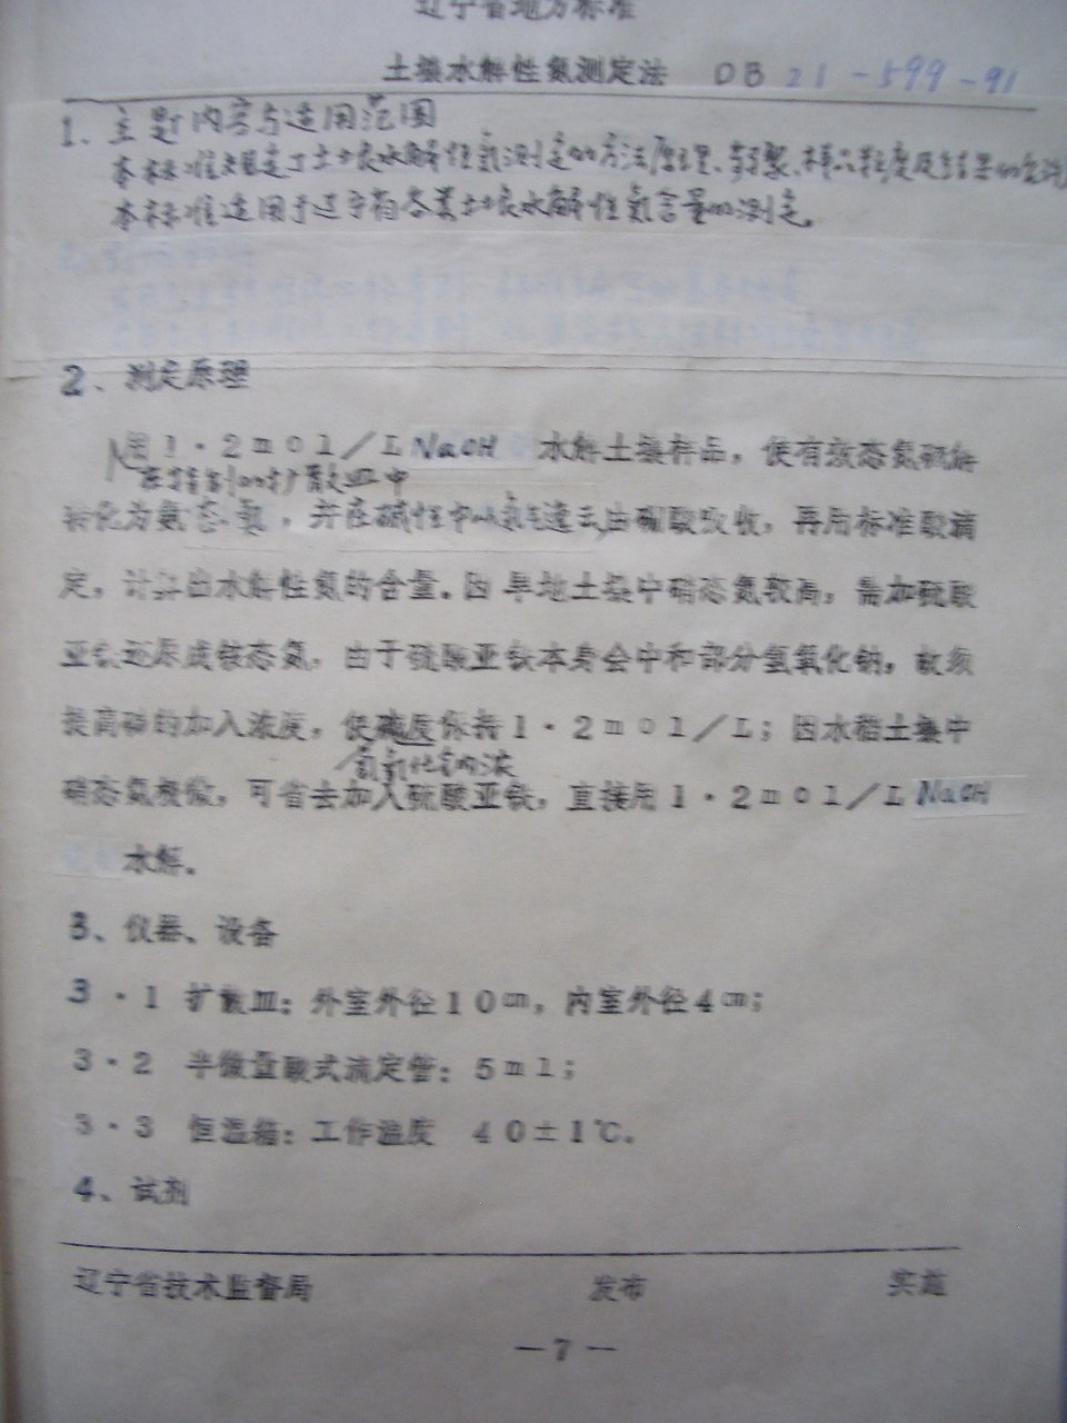 辽宁省地方标准
土壤水解性氮测定法 DB 21-599-91
1、主题内容与适用范围
本标准规定了土壤水解性氮测定的方法原理、步骤、样品粒度及结果的允许
本标准适用于辽宁省各类土壤水解性氮含量的测定。
2、测定原理
用1·2mol/L NaOH 水解土壤样品，使有效态氮碱解
在特制的扩散皿中
转化为氨态氮，并在碱性中以氨气逸去，由硼酸吸收，再用标准酸滴
定，计算出水解性氮的含量。因旱地土壤中硝态氮较高，需加硫酸
亚铁还原成铵态氮，由于硫酸亚铁本身会中和部分氢氧化钠，故须
提高碱的加入浓度，使碱度保持1·2mol/L；因水稻土壤中
氢氧化钠浓
硝态氮极微，可省去加入硫酸亚铁，直接用1·2mol/L NaOH
水解。
3、仪器、设备
3·1 扩散皿：外室外径10cm，内室外径4cm；
3·2 半微量酸式滴定管：5ml；
3·3 恒温箱：工作温度 40±1℃。
4、试剂
辽宁省技术监督局 发布 实施
—7—